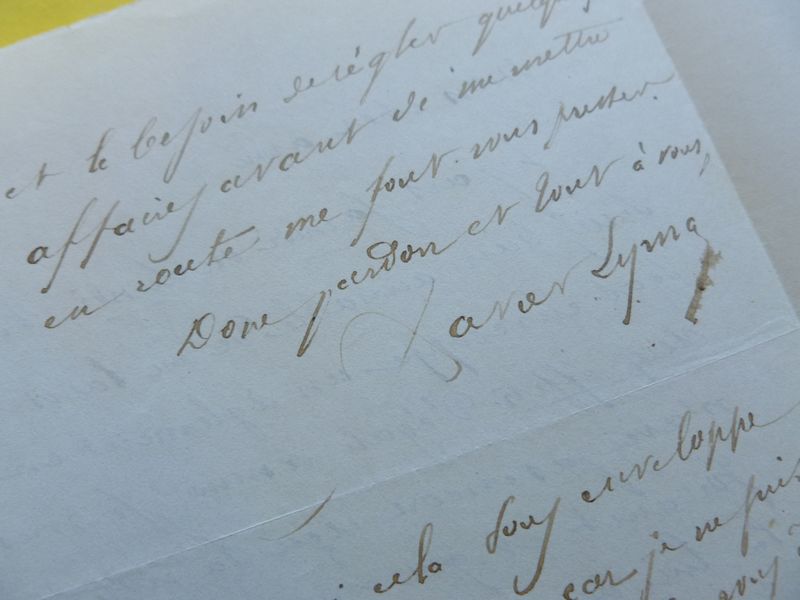 et le besoin de régler quelques
affaires avant de me mettre
en route me font vous presser.
Donc pardon et tout à vous,
Xavier Lyma
cela sous enveloppe
car je ne suis